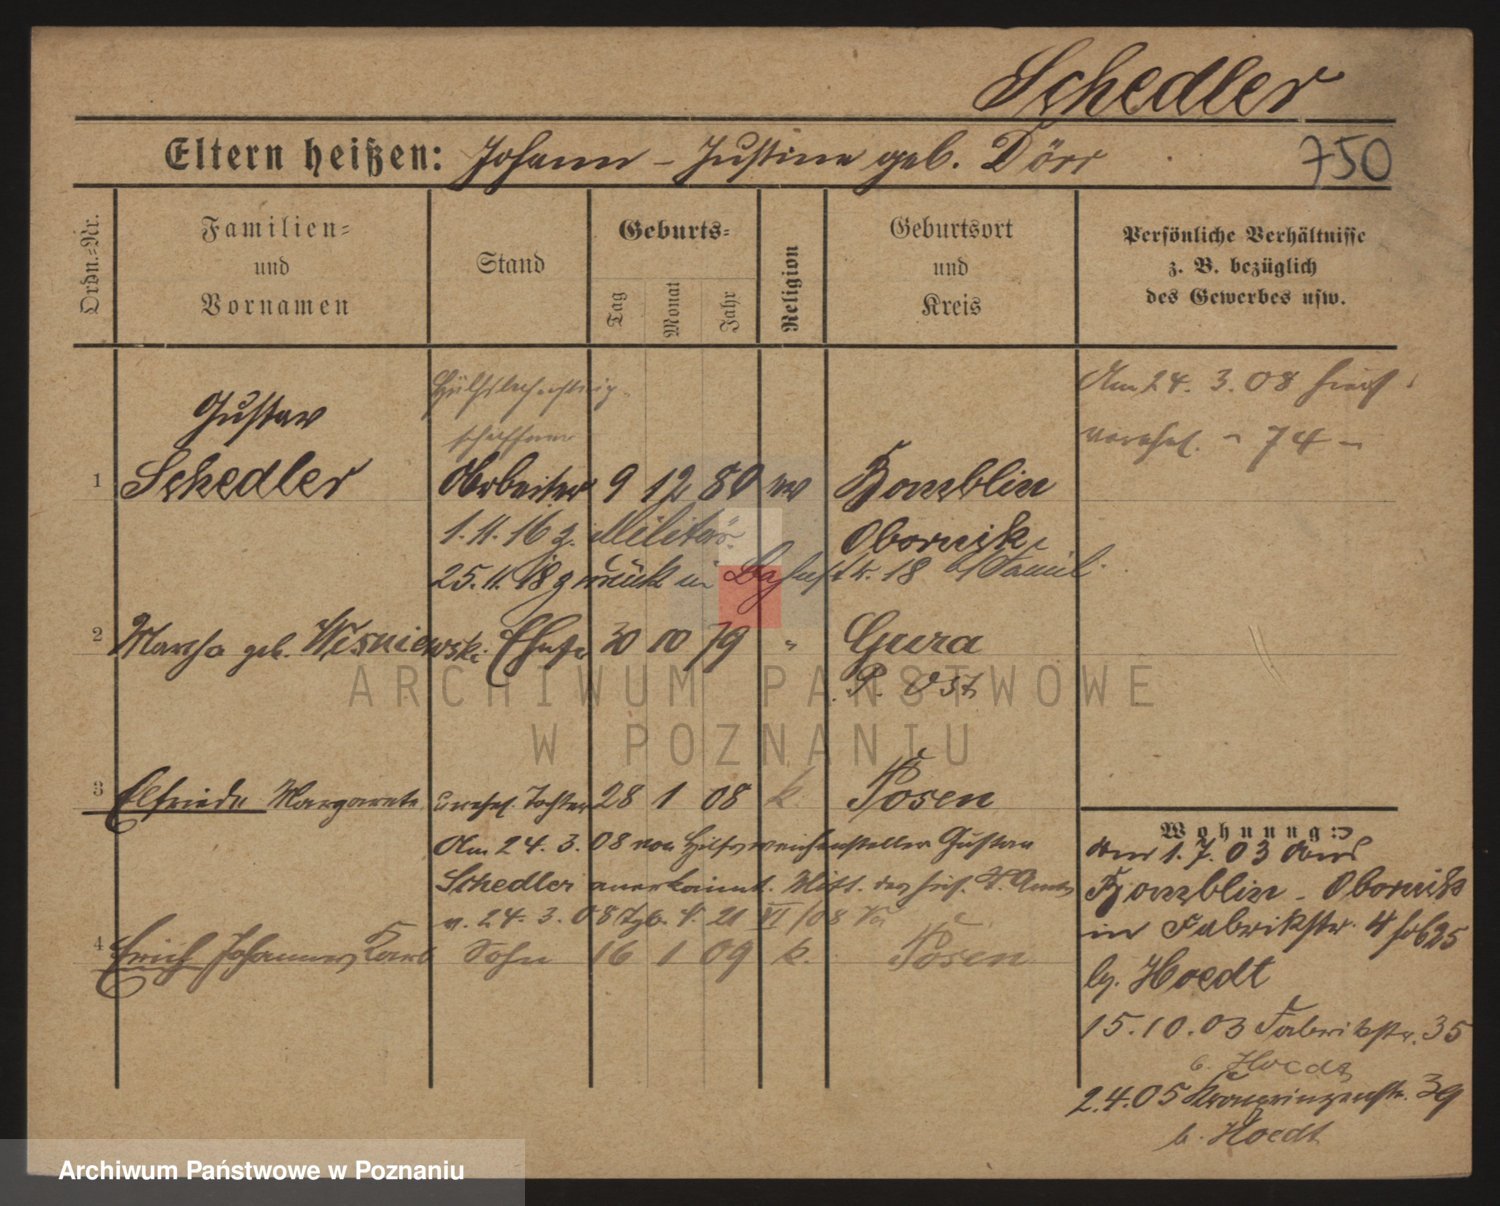 Schedler
Eltern heißen: Johann – Justine geb. Dörr
750
Ordn.-Nr.
Familien- und Vornamen
Stand
Geburts-
Tag
Monat
Jahr
Religion
Geburtsort und Kreis
Persönliche Verhältnisse
z. B. bezüglich
des Gewerbes usw.
Am 24. 3. 08 hier
verehel. - 74 -
Gustav
1 Schedler Arbeiter 9 12 80 ev
Obornik
1. 11. 16 z. Militär
25. 11. 18 zurück in 18 z. Famil.
2 Martha geb. Wisniewski Ehefr 30 10 79 "
Gura
P. Ost
3 Elfriede Margarete unehel. Tochter 28 1 08 k. Posen
Am 24. 3. 08 von Hilfsweichensteller Gustav
Schedler anerkannt. Mitt. des hies. St. Amts
v. 24. 3. 08
4 Erich Johannes Karl Sohn 16 1 09 k. Posen
Wohnung:
am 1. 7. 03 aus
Obornik
in Fabrikstr.
by. Hoedt
15. 10. 03 Fabrikstr. 35
b. Hoedt
2. 4. 05 Kronprinzenstr. 39
b. Hoedt
ARCHIWUM PAŃSTWOWE
W POZNANIU
Archiwum Państwowe w Poznaniu